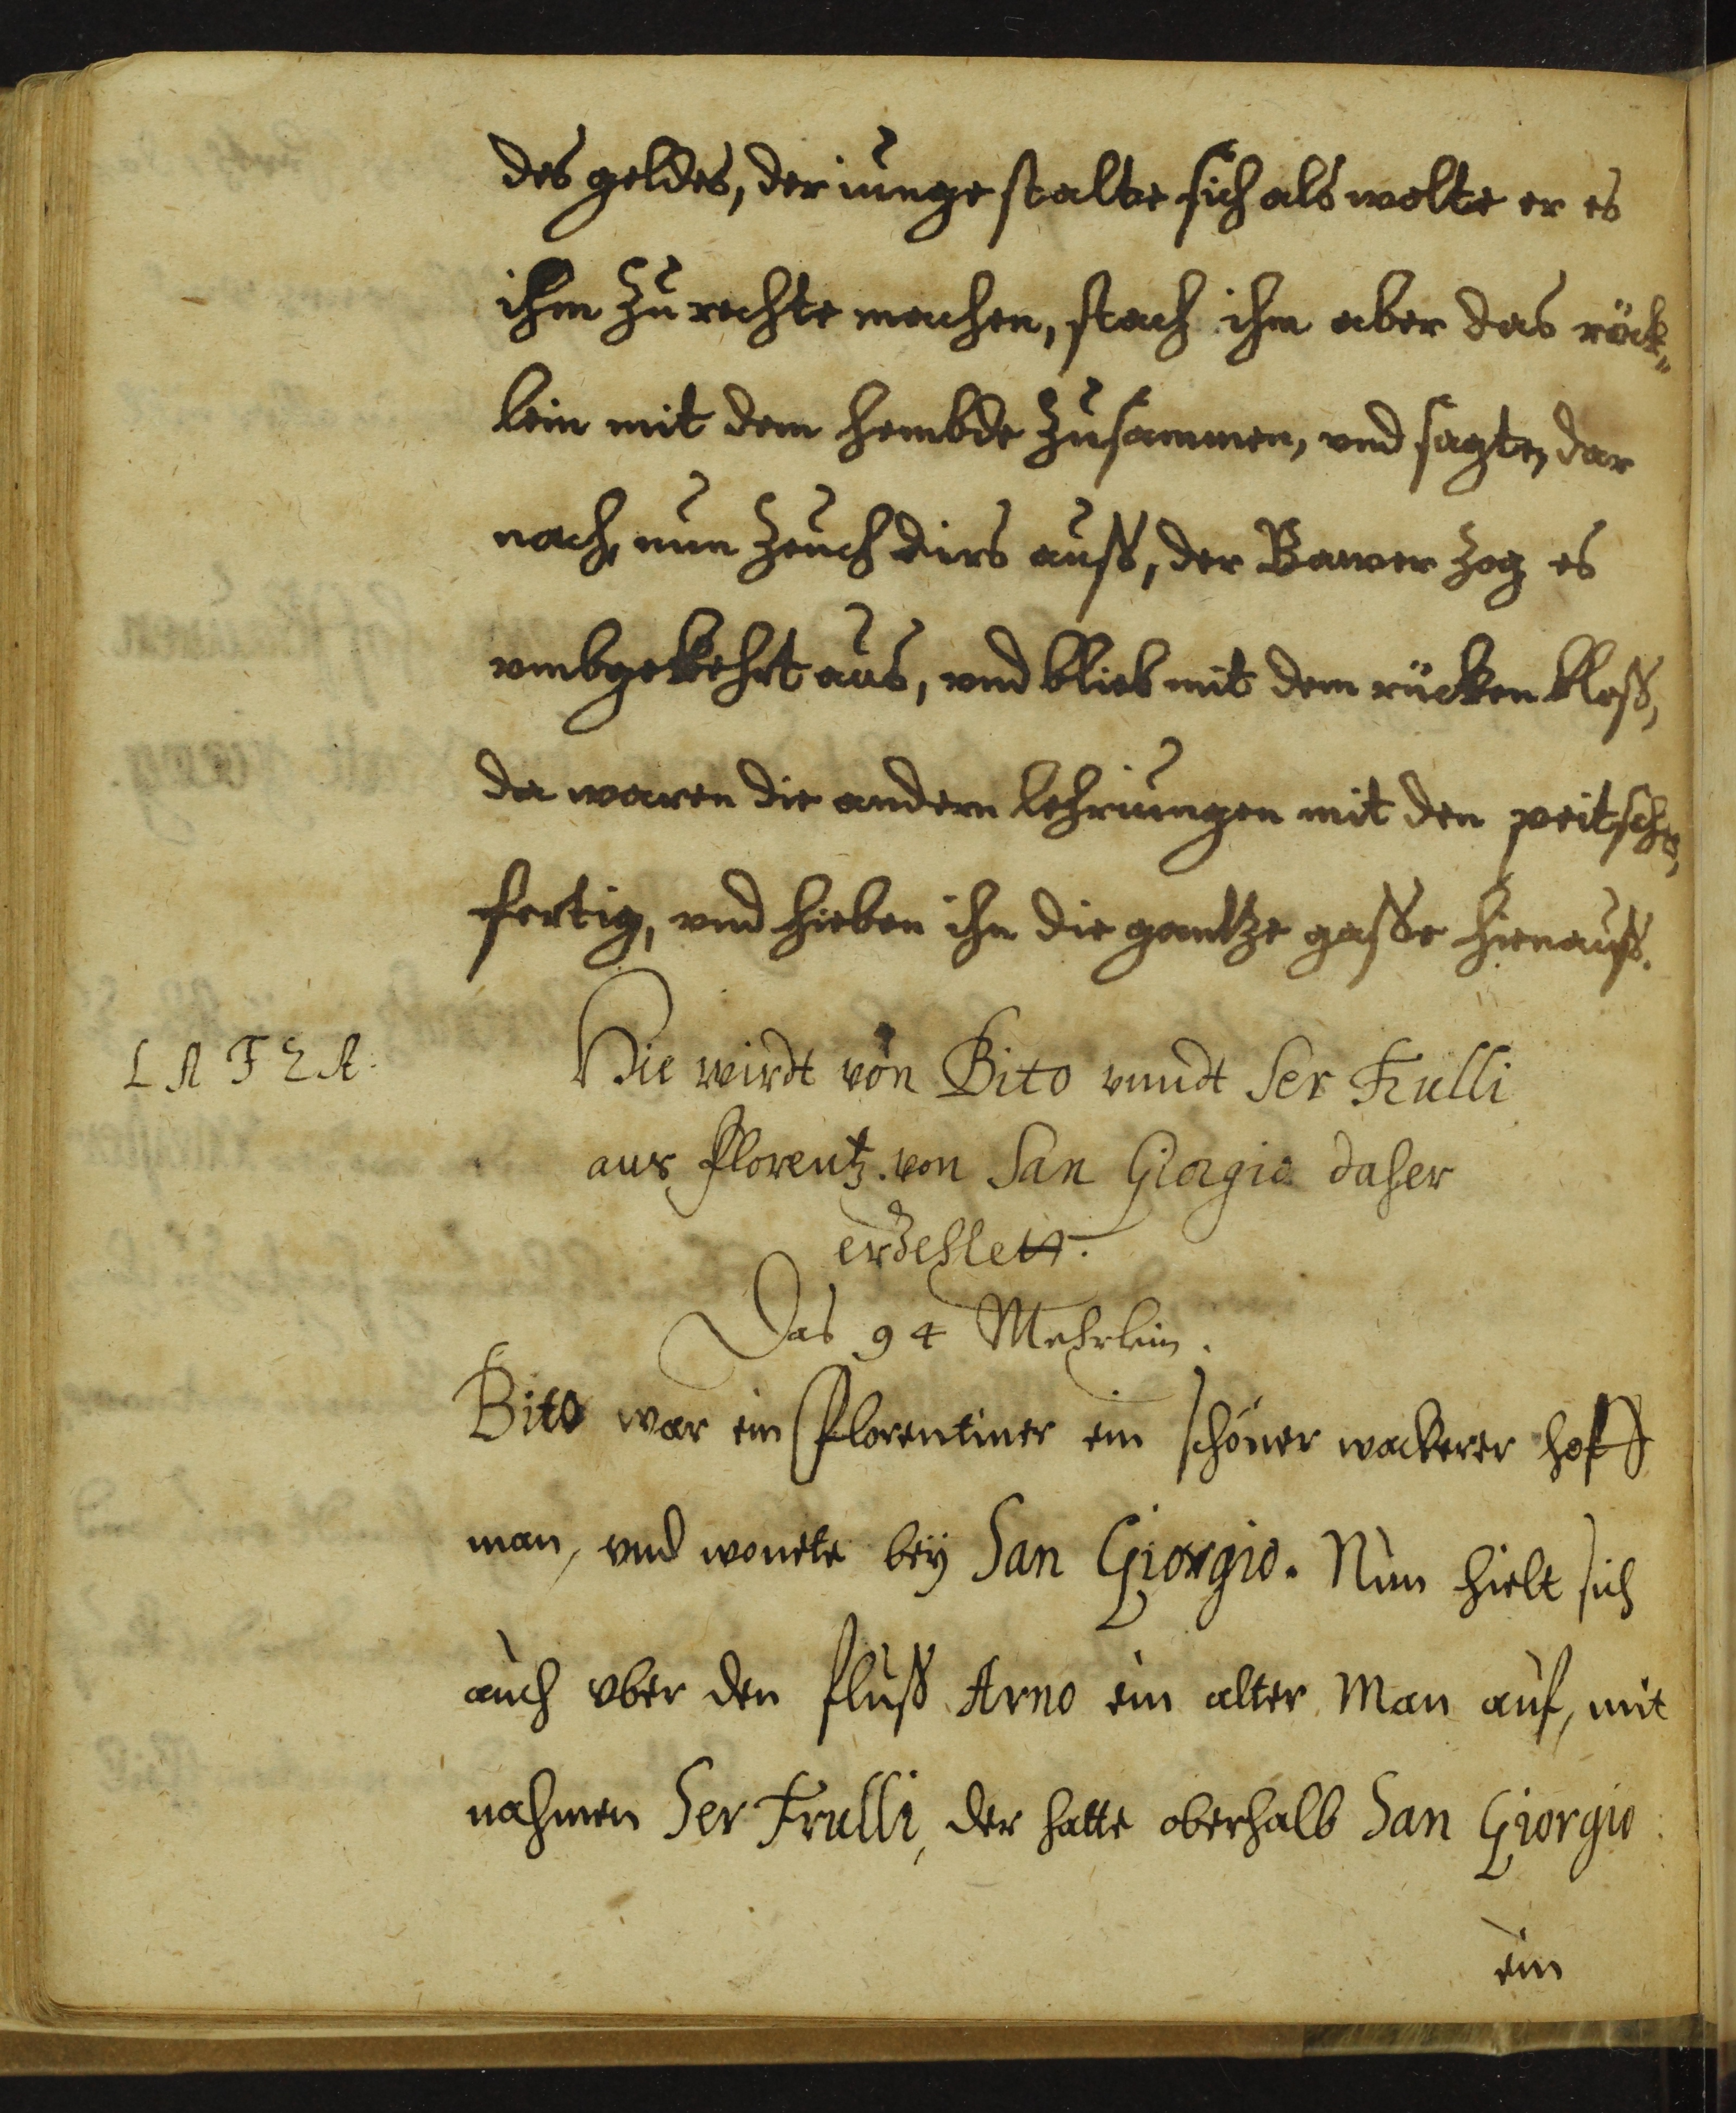 des geldes, der iunge stalte sich als wolte er es
ihm zu rechte machen, stach ihm aber das röck„
lein mit dem hembde zusammen, vnd sagte, dar
nach, nun zeuch dirs auß, der Bawer zog es
vmbgekehrt aus, vnd blieb mit dem rücken bloß,
da waren die andern lehriungen mit den peitschen
fertig, vnd hieben ihn die gantze gasse hienauß.
Hie wirdt von Bito vnndt Ser Frulli
aus Florentz. von San Giorgio daher
erzehlett.
Das 94 Mehrlein.
Bito war ein Florentiner ein schöner wackerer hoff
man, vnd wonete bey San Giorgio. Nun hielt sich
auch vber den fluß Arno ein alter Man auf, mit
nahmen Ser Frulli, der hatte oberhalb San Giorgio
ein